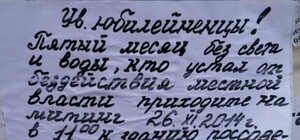 Ув. юбилейненцы!
Пятый месяц без света
и воды, кто устал от
бездействия местной
власти приходите на
митинг 26.XI.2014г.
в 11⁰⁰ к зданию